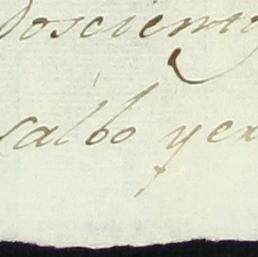 Dosciento
salbo yer